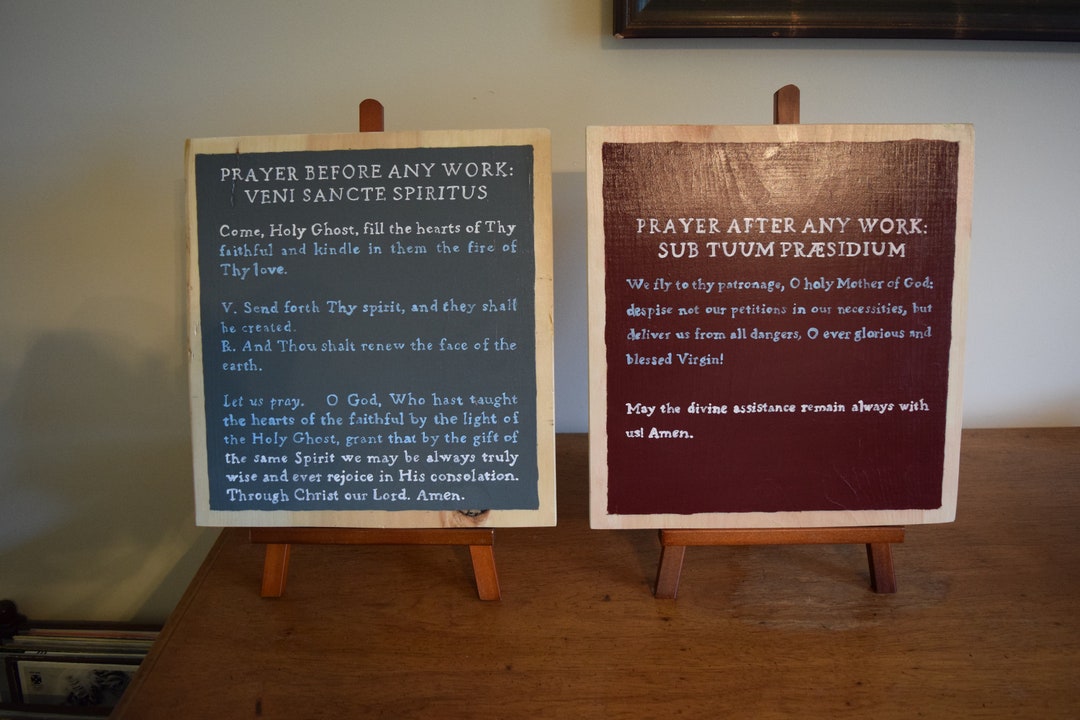 PRAYER BEFORE ANY WORK:
VENI SANCTE SPIRITUS
Come, Holy Ghost, fill the hearts of Thy
faithful and kindle in them the fire of
Thy love.
V. Send forth Thy spirit, and they shall
be created.
R. And Thou shalt renew the face of the
earth.
Let us pray. O God, Who hast taught
the hearts of the faithful by the light of
the Holy Ghost, grant that by the gift of
the same Spirit we may be always truly
wise and ever rejoice in His consolation.
Through Christ our Lord. Amen.
PRAYER AFTER ANY WORK:
SUB TUUM PRÆSIDIUM
We fly to thy patronage, O holy Mother of God;
despise not our petitions in our necessities, but
deliver us from all dangers, O ever glorious and
blessed Virgin!
May the divine assistance remain always with
us! Amen.